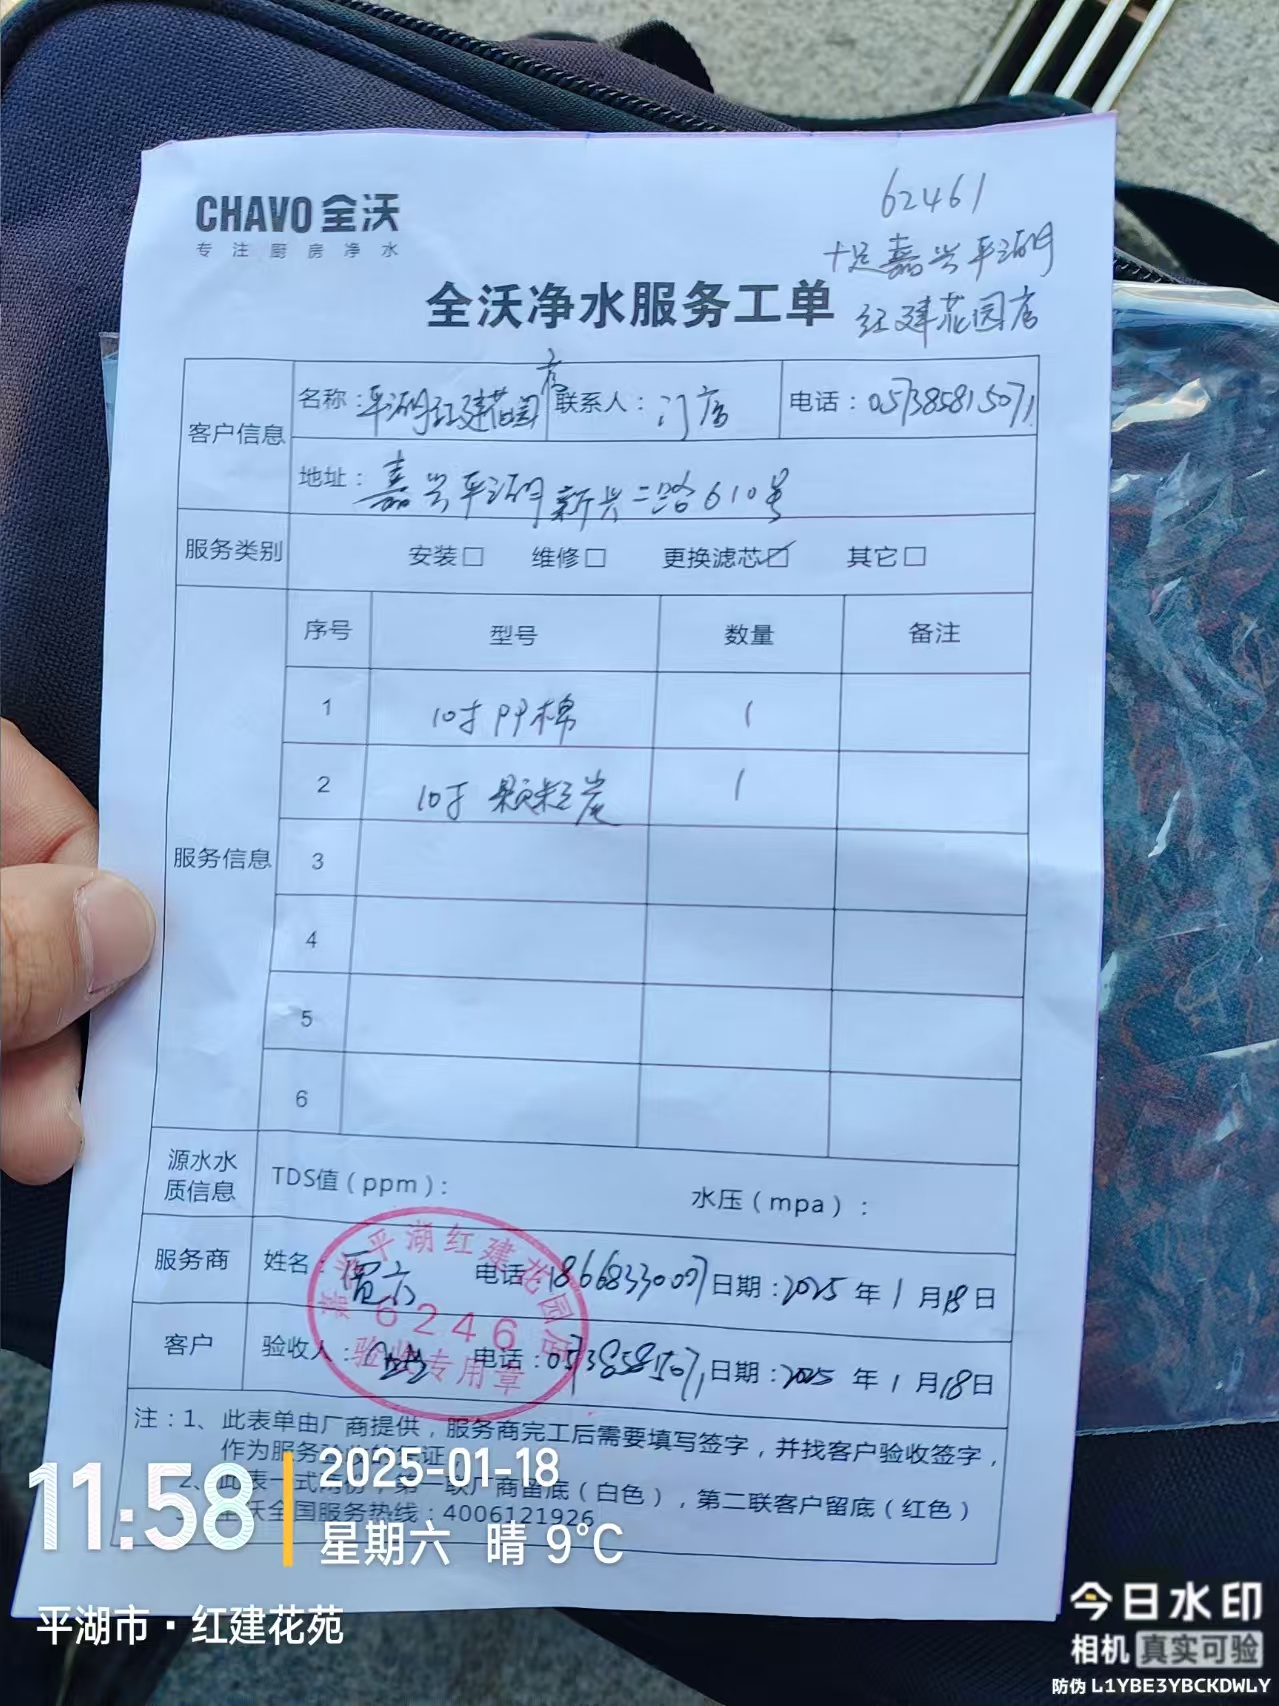 62461
十足嘉兴平湖
红建花园店
CHAVO 全沃
专注厨房净水
全沃净水服务工单
客户信息 名称：平湖红建花园店 联系人：门店 电话：057385815071
地址：嘉兴平湖新兴二路610号
服务类别 安装□ 维修□ 更换滤芯☑ 其它□
服务信息 序号 型号 数量 备注
1 10寸PP棉 1
2 10寸颗粒炭 1
3
4
5
6
源水水质信息 TDS值（ppm）： 水压（mpa）：
服务商 姓名： 电话：18668330007 日期：2025年1月18日
客户 验收人： 电话：057385815071 日期：2025年1月18日
平湖红建花园店
6246
验收专用章
注：1、此表单由厂商提供，服务商完工后需要填写签字，并找客户验收签字，
作为服务 证
2、此表一式两份，第一联厂商留底（白色），第二联客户留底（红色）
全沃全国服务热线：4006121926
11:58
2025-01-18
星期六 晴 9℃
平湖市·红建花苑
今日水印
相机 真实可验
防伪 L1YBE3YBCKDWLY